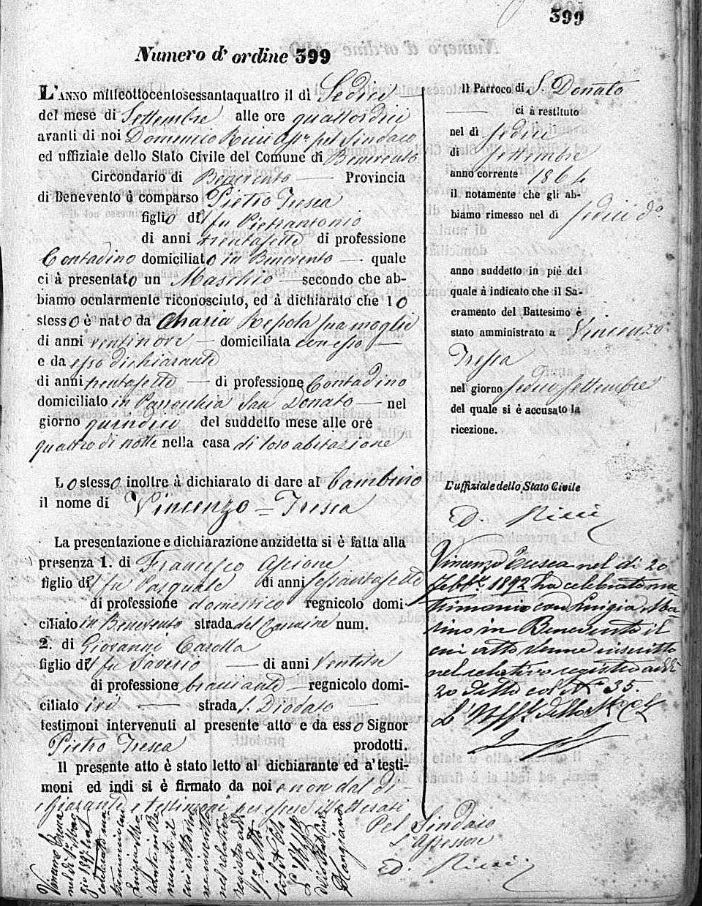 399
Numero d'ordine 399
L'Anno milleottocentosessantaquattro il dì Sedici
del mese di Settembre alle ore quattordici
avanti di noi Domenico Ricci Assre pel Sindaco
ed uffiziale dello Stato Civile del Comune di Benevento
Circondario di Benevento — Provincia
di Benevento è comparso Pietro Tresca
figlio di fu Pietrantonio
di anni trentasette di professione
Contadino domiciliato in Benevento — quale
ci à presentato un Maschio — secondo che ab-
biamo ocularmente riconosciuto, ed à dichiarato che lo
stesso è nato da Maria Repola sua moglie
di anni ventinove — domiciliata con esso —
e da esso dichiarante
di anni trentasette — di professione Contadino
domiciliato in Parrocchia San Donato — nel
giorno quindici del suddetto mese alle ore
quattro di notte nella casa di loro abitazione
Lo stesso inoltre à dichiarato di dare al bambino
il nome di Vincenzo = Tresca
La presentazione e dichiarazione anzidetta si è fatta alla
presenza 1. di Francesco
figlio di fu Pasquale di anni sessantasette
di professione domestico regnicolo domi-
ciliato in Benevento strada del Carmine num.
2. di Giovanni Carolla
figlio di fu Saverio — di anni Ventitre
di professione bracciante — regnicolo domi-
ciliato ivi — strada S. Diodato
testimoni intervenuti al presente atto e da esso Signor
Pietro Tresca prodotti.
Il presente atto è stato letto al dichiarante ed a' testi-
moni ed indi si è firmato da noi e non dal di-
chiarante e testimoni per essere illetterati
Il Parroco di S. Donato
— ci à restituto
nel dì sedici
di settembre
anno corrente 1864
il notamente che gli ab-
biamo rimesso nel dì sedici do
anno suddetto in piè del
quale à indicato che il Sa-
cramento del Battesimo è
stato amministrato a Vincenzo
Tresca
nel giorno sedici settembre
del quale si è accusato la
ricezione.
L'uffiziale dello Stato Civile
D. Ricci
Vincenzo Tresca nel dì 20
Febb.e 1892 ha celebrato ma-
trimonio con Luigia
in Benevento il
cui atto venne inscritto
nel relativo registro
20 detto col No 35.
L'Uff.
Pel Sindaco
L'Assessore
D. Ricci